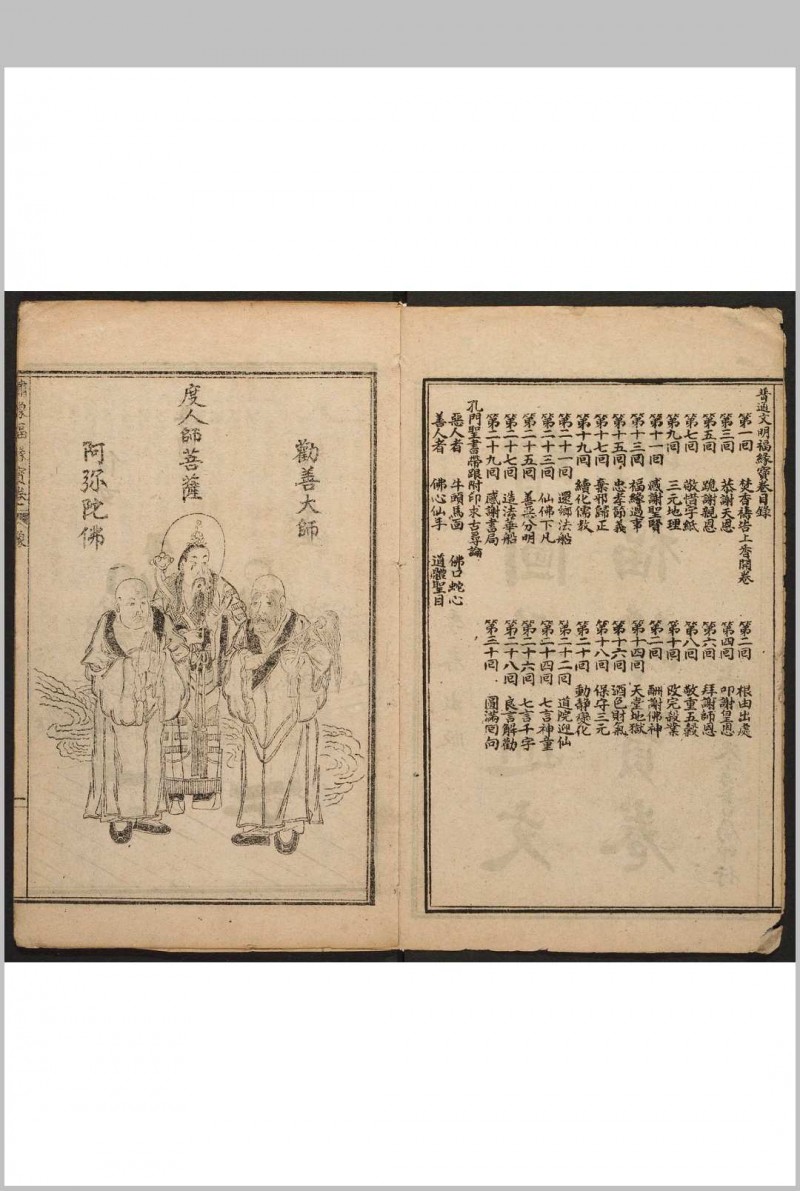 普通文明福緣寶卷目錄
第一回 焚香禱告上香開卷 第二回 根由出處
第三回 恭謝天恩 第四回 叩謝皇恩
第五回 跪謝親恩 第六回 拜謝師恩
第七回 敬惜字紙 第八回 敬重五穀
第九回 三元地理 第十回 改完殺業
第十一回 感謝聖賢 第二回 酬謝佛神
第十三回 福緣過事 第十四回 天堂地獄
第十五回 忠孝節義 第十六回 酒色財氣
第十七回 棄邪歸正 第十八回 保守三元
第十九回 續化儒教 第二十回 動靜變化
第二十一回 還鄉法船 第二十二回 道院迎仙
第二十三回 仙佛下凡 第二十四回 七言神童
第二十五回 善惡分明 第二十六回 七言千字
第二十七回 造法華船 第二十八回 良言解勸
第二十九回 感謝書局 第三十回 圓滿回向
孔門聖書帶跟附印求古尋論
惡人者 牛頭馬面 佛口蛇心
善人者 佛心仙手 道體聖目
勸善大師
度人師菩薩
阿弥陀佛